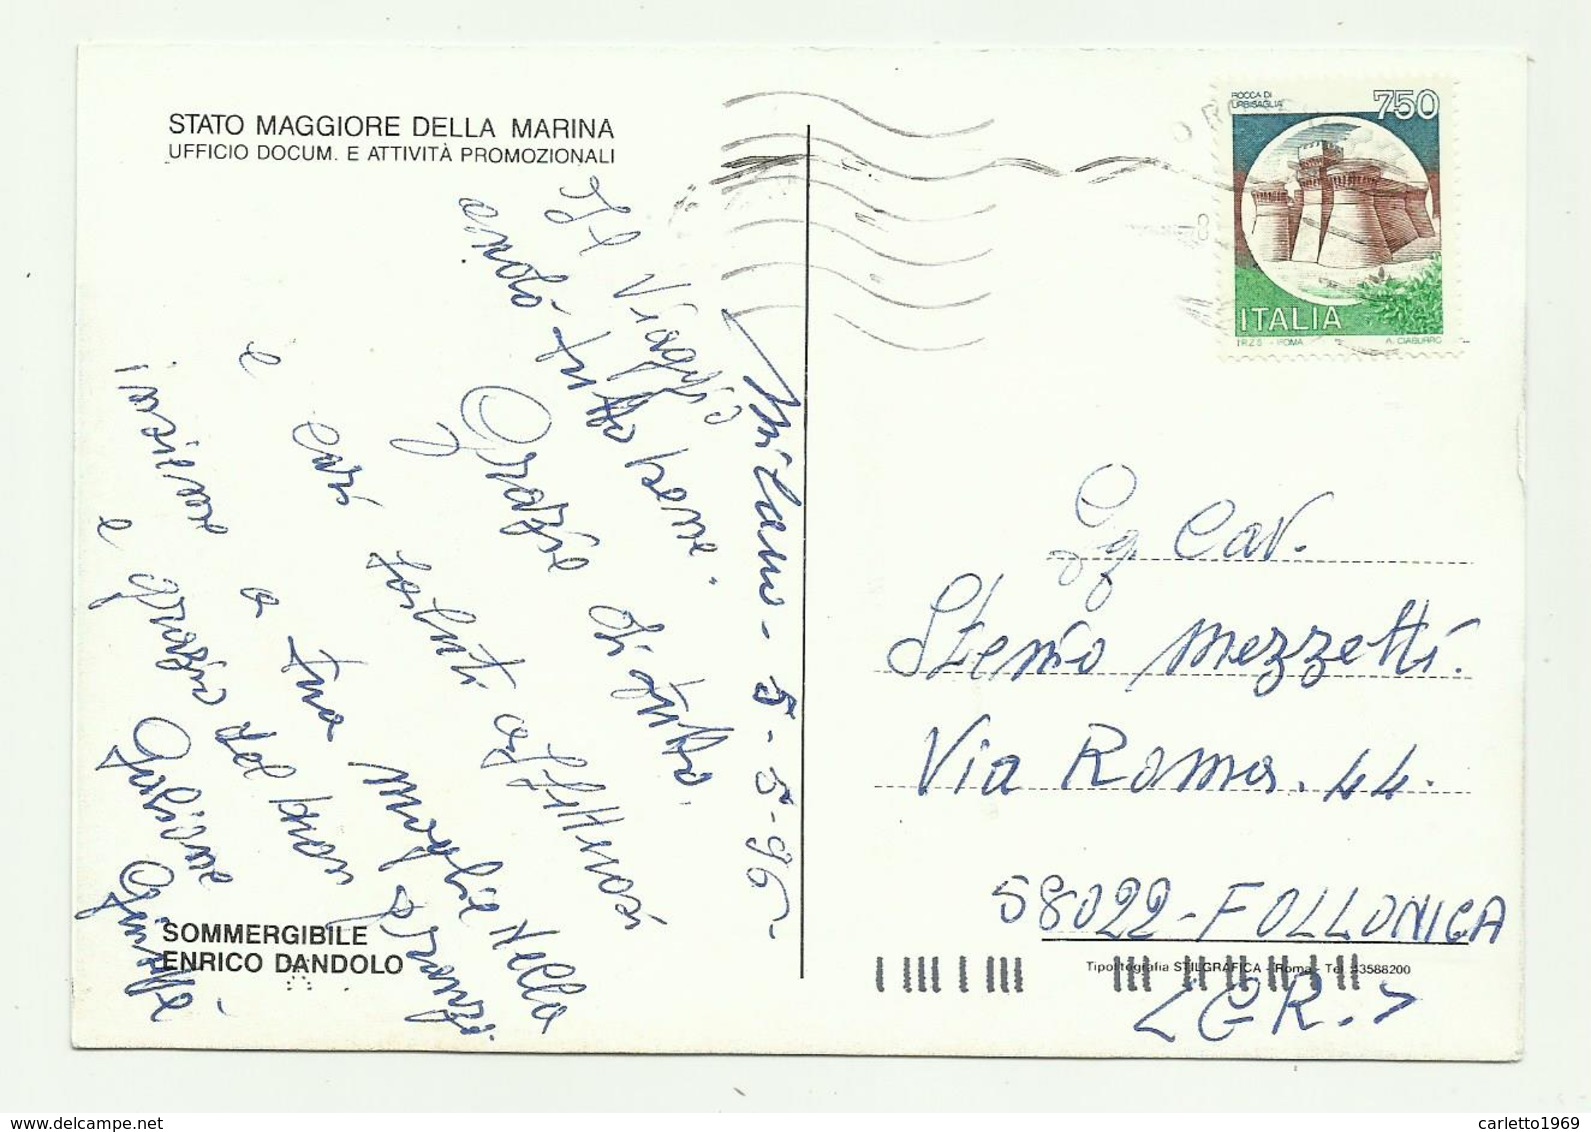 STATO MAGGIORE DELLA MARINA
UFFICIO DOCUM. E ATTIVITÀ PROMOZIONALI
Milano - 5 - 5 - 96 -
Il Viaggio
andò tutto bene.
Grazie di tutto.
e cari saluti affettuosi
insieme a tua moglie Nella
e grazie del buon pranzo.
SOMMERGIBILE
ENRICO DANDOLO
ROCCA DI
URBISAGLIA
750
ITALIA
I.P.Z.S. - ROMA
A. CIABURRO
8
Sg Cav.
Stenio Mezzetti.
Via Roma. 44.
58022 - FOLLONICA
Tipolitografia STILGRAFICA - Roma - Tel. 43588200
<GR.>
carletto1969